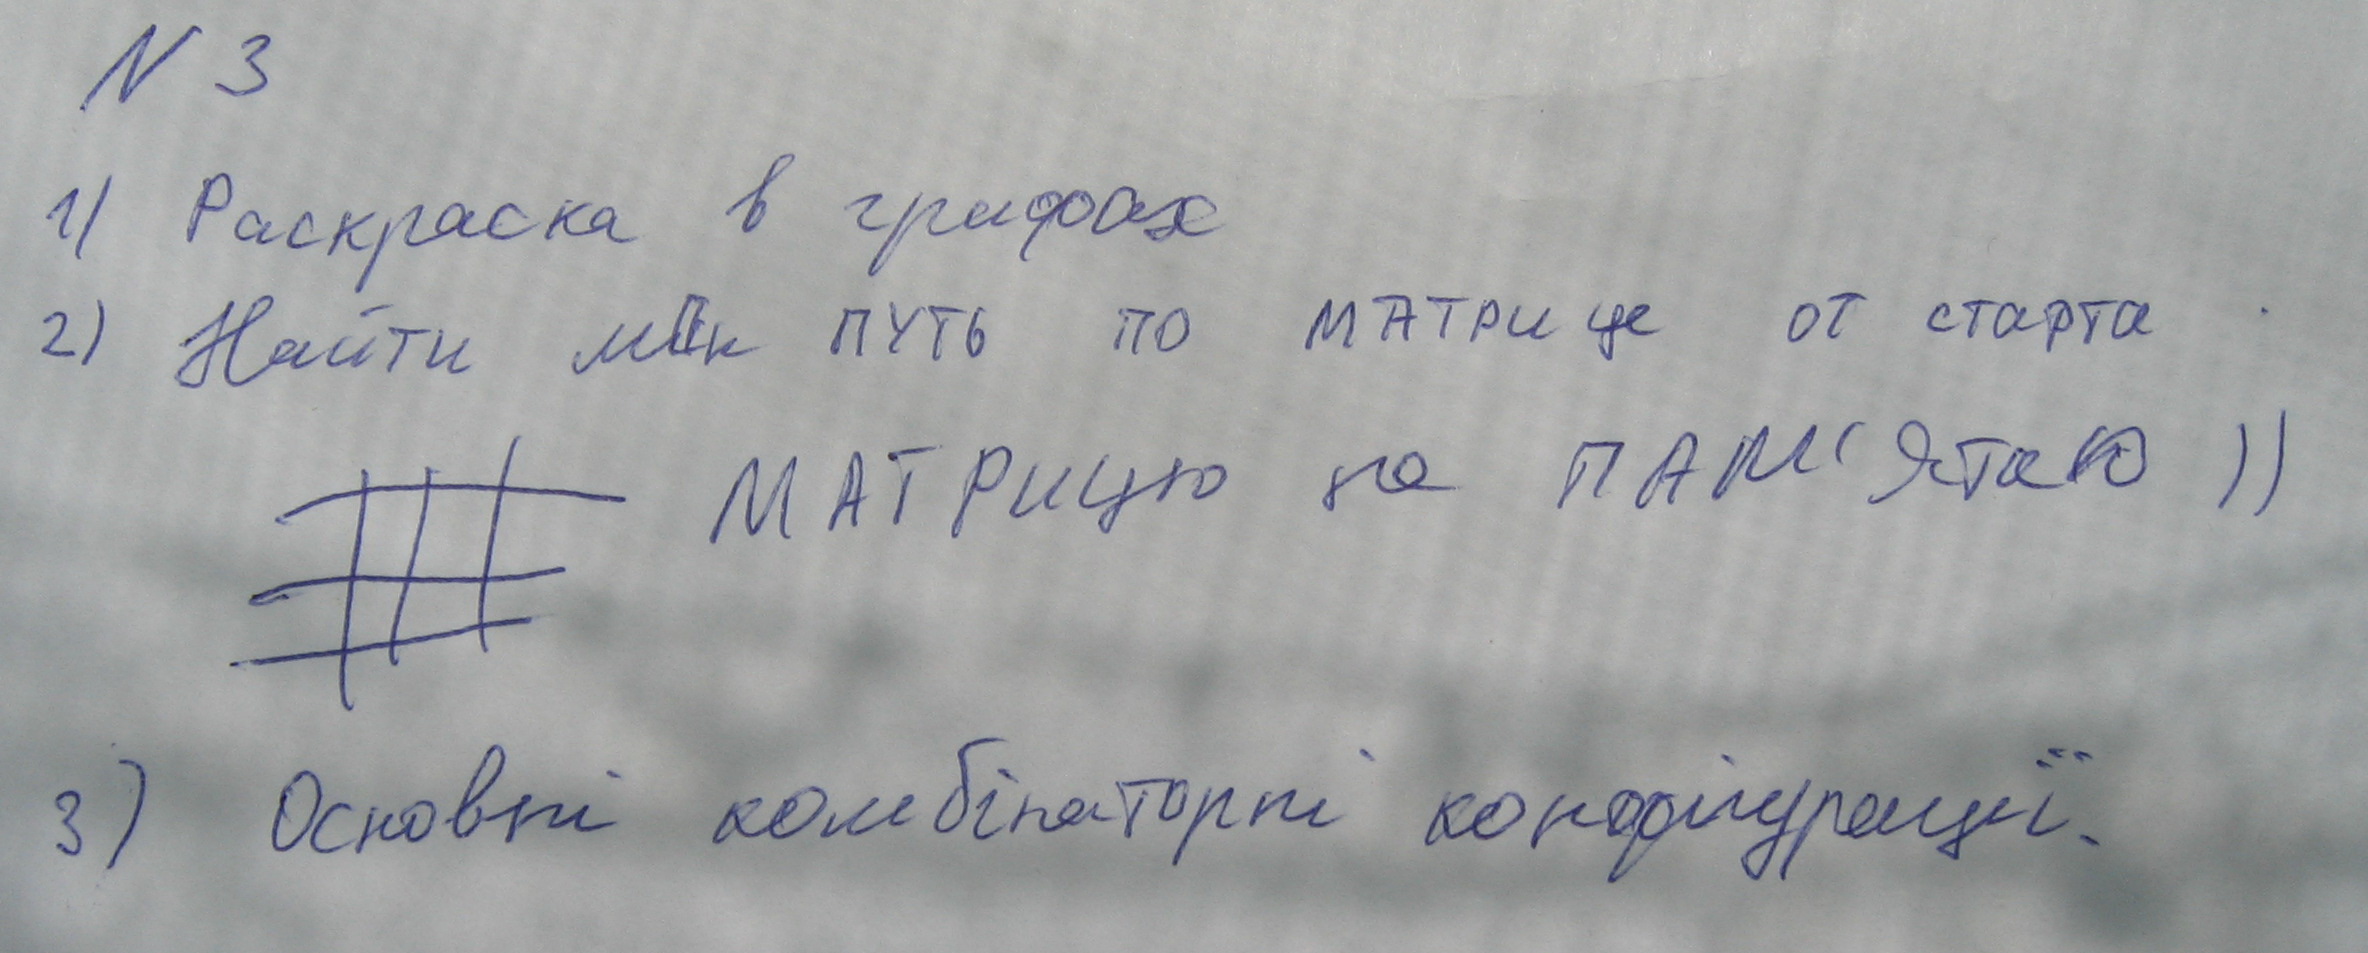 N 3
1) Раскраска в графах
2) Найти мин путь по матрице от старта
МАТРИЦЮ не ПАМ'ЯТаЮ ))
3) Основні комбінаторні конфігурації.